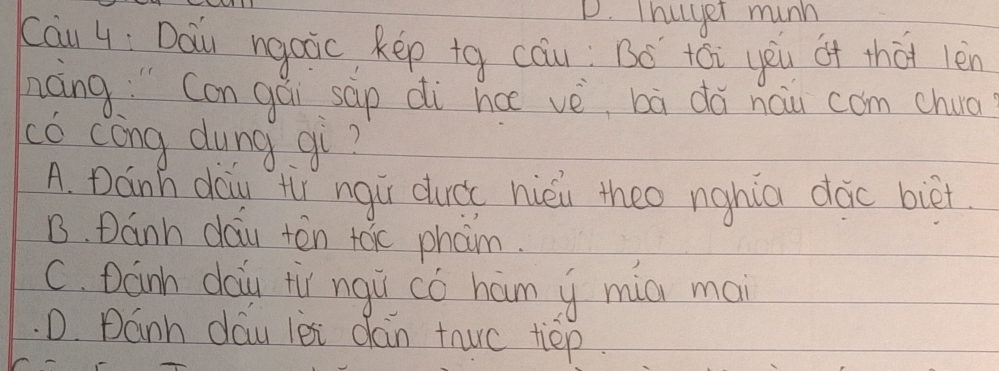 D. Thuyết minh
Câu 4: Dấu ngoặc kép tg câu: Bố tôi yếu ớt thốt lên
rằng: "Con gái sắp đi học về, bà đã nấu cơm chưa?
có công dụng gì?
A. Đánh dấu từ ngữ được hiểu theo nghĩa đặc biệt.
B. Đánh dấu tên tác phẩm.
C. Đánh dấu từ ngữ có hàm ý mỉa mai
D. Đánh dấu lời dẫn trực tiếp.